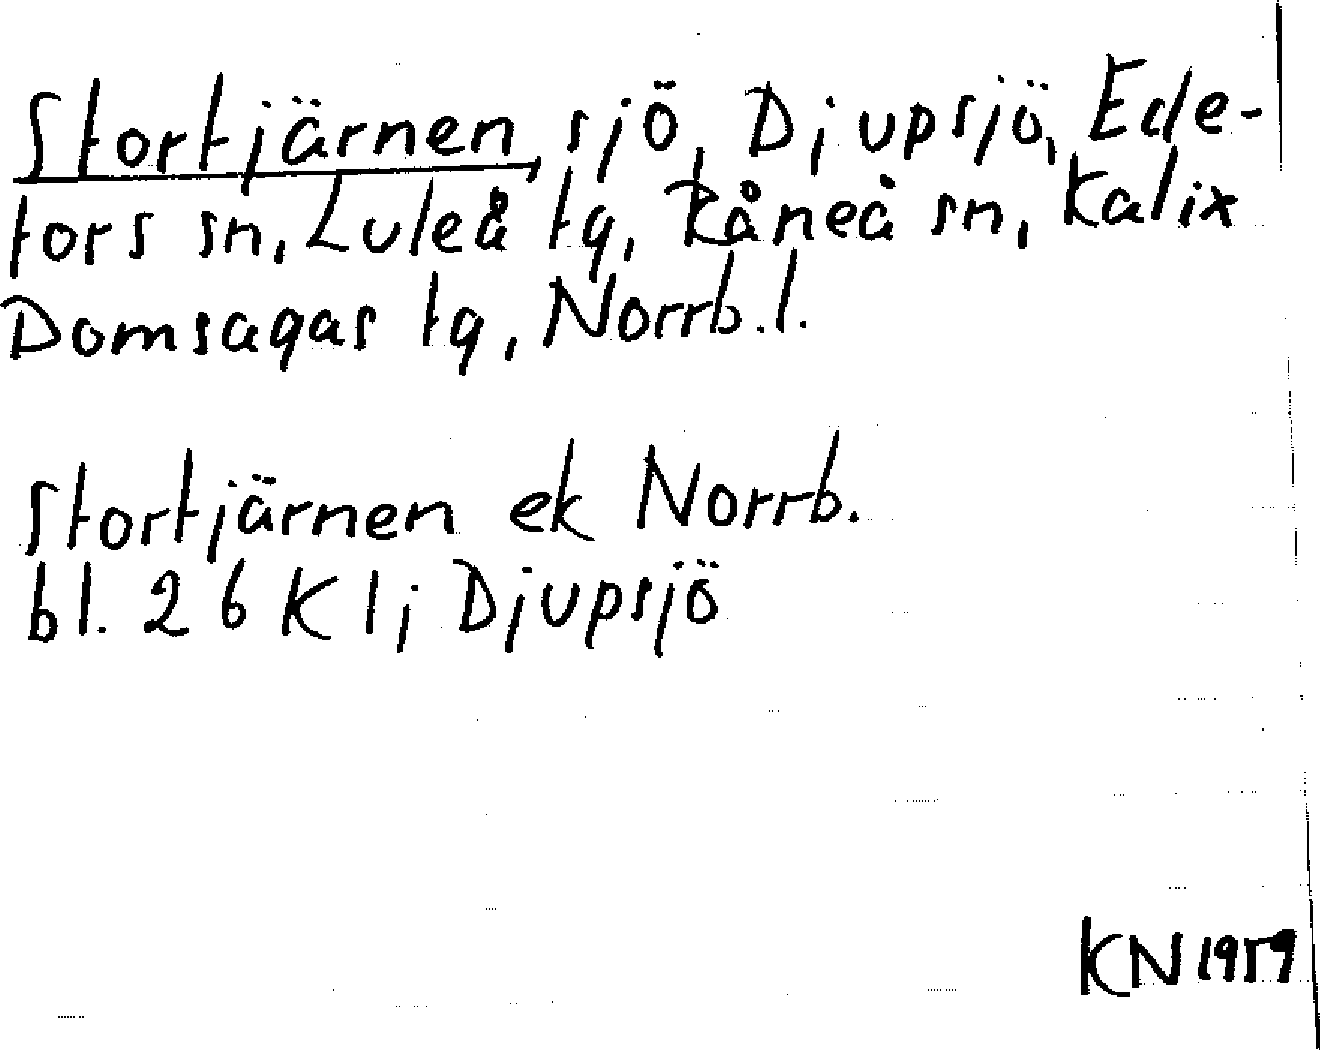 Stortjärnen, sjö, Djupsjö, Ede-
fors sn, Luleå tg, Råneå sn, Kalix
Domsagas tg, Norrb.l.
Stortjärnen ek Norrb.
bl. 26 K l; Djupsjö
KN 1959